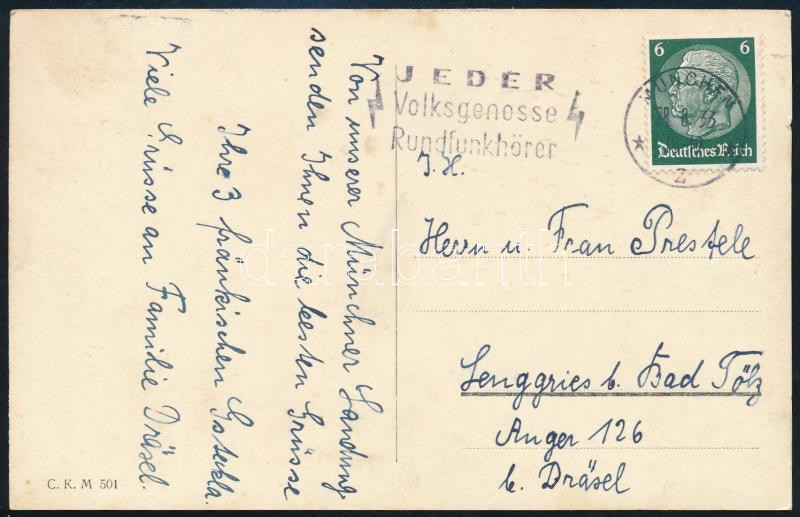 Von unserer Münchner Landung
senden Ihnen die besten Grüsse
Ihre 3 fränkischen
Viele Grüsse an Familie Dräsel.
C. K. M 501
JEDER
Volksgenosse
Rundfunkhörer
6 6
Deutsches Reich
MÜNCHEN
2
I. H.
Herrn u. Frau Prestele
Lenggries b. Bad Tölz
Anger 126
b. Dräsel
darabanth